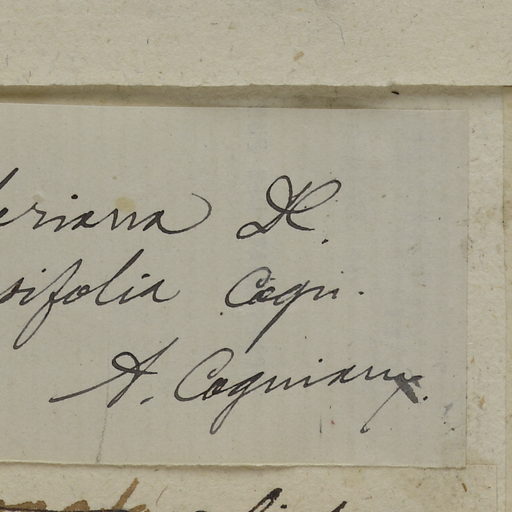 eriana DC.
sifolia Cogn.
A. Cogniaux.